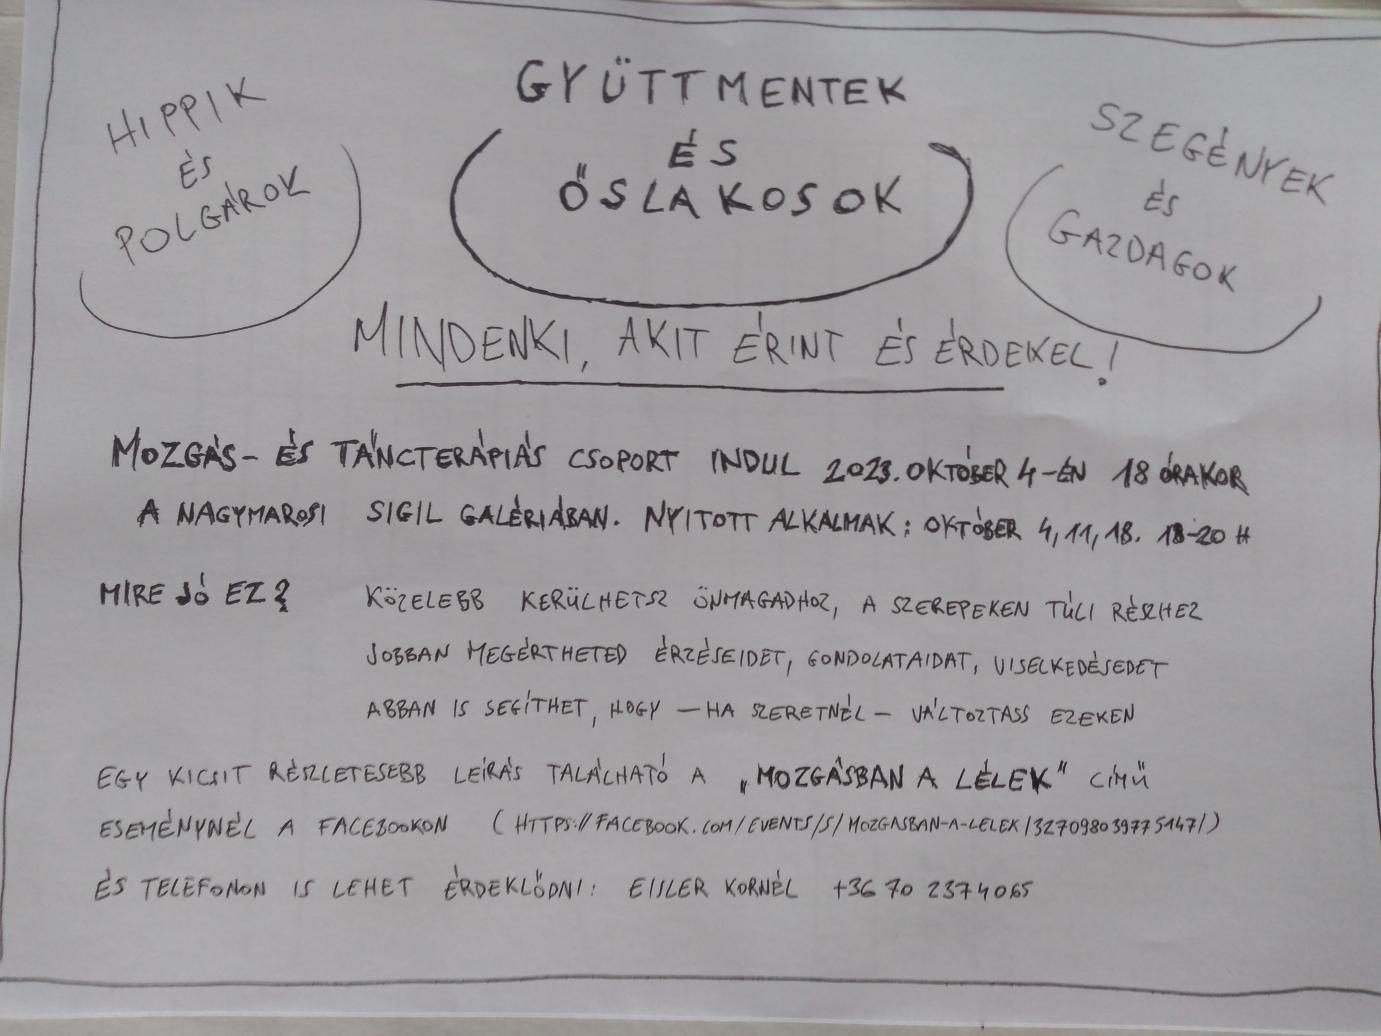 HIPPIK
ÉS
POLGÁROK
GYÜTTMENTEK
ÉS
ŐSLAKOSOK
SZEGÉNYEK
ÉS
GAZDAGOK
MINDENKI, AKIT ÉRINT ÉS ÉRDEKEL!
MOZGÁS- ÉS TÁNCTERÁPIÁS CSOPORT INDUL 2023. OKTÓBER 4-ÉN 18 ÓRAKOR
A NAGYMAROSI SIGIL GALÉRIÁBAN. NYITOTT ALKALMAK: OKTÓBER 4, 11, 18. 18-20 H
MIRE JÓ EZ? KÖZELEBB KERÜLHETSZ ÖNMAGADHOZ, A SZEREPEKEN TÚLI RÉSZHEZ
JOBBAN MEGÉRTHETED ÉRZÉSEIDET, GONDOLATAIDAT, VISELKEDÉSEDET
ABBAN IS SEGÍTHET, HOGY – HA SZERETNÉL – VÁLTOZTASS EZEKEN
EGY KICSIT RÉSZLETESEBB LEÍRÁS TALÁLHATÓ A „MOZGÁSBAN A LÉLEK" CÍMŰ
ESEMÉNYNÉL A FACEBOOKON (HTTPS://FACEBOOK.COM/EVENTS/S/MOZGASBAN-A-LELEK/327098039775147/)
ÉS TELEFONON IS LEHET ÉRDEKLŐDNI: EISLER KORNÉL +36 70 2374065